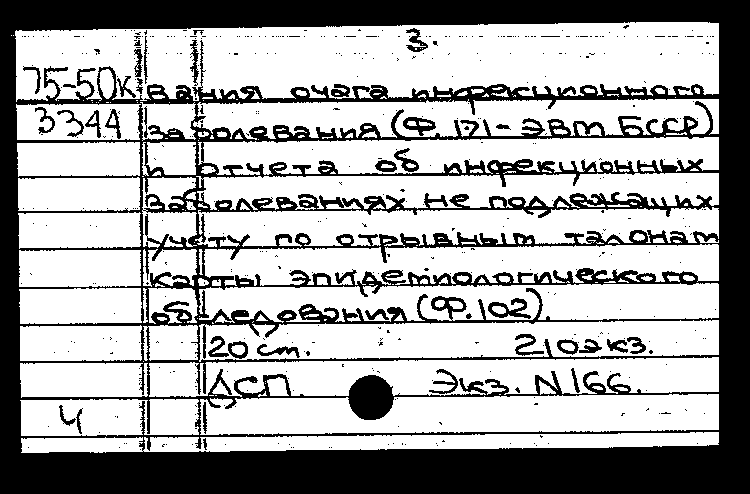 3.
75-50к вания очага инфекционного
3344 заболевания (Ф. 171-эвт БССР)
и отчета об инфекционных
заболеваниях, не подлежащих
учету по отрывным талонам
карты эпидемиологического
обследования (Ф.102).
20 ст. 210экз.
ДСП. Экз. N 166.
Ч